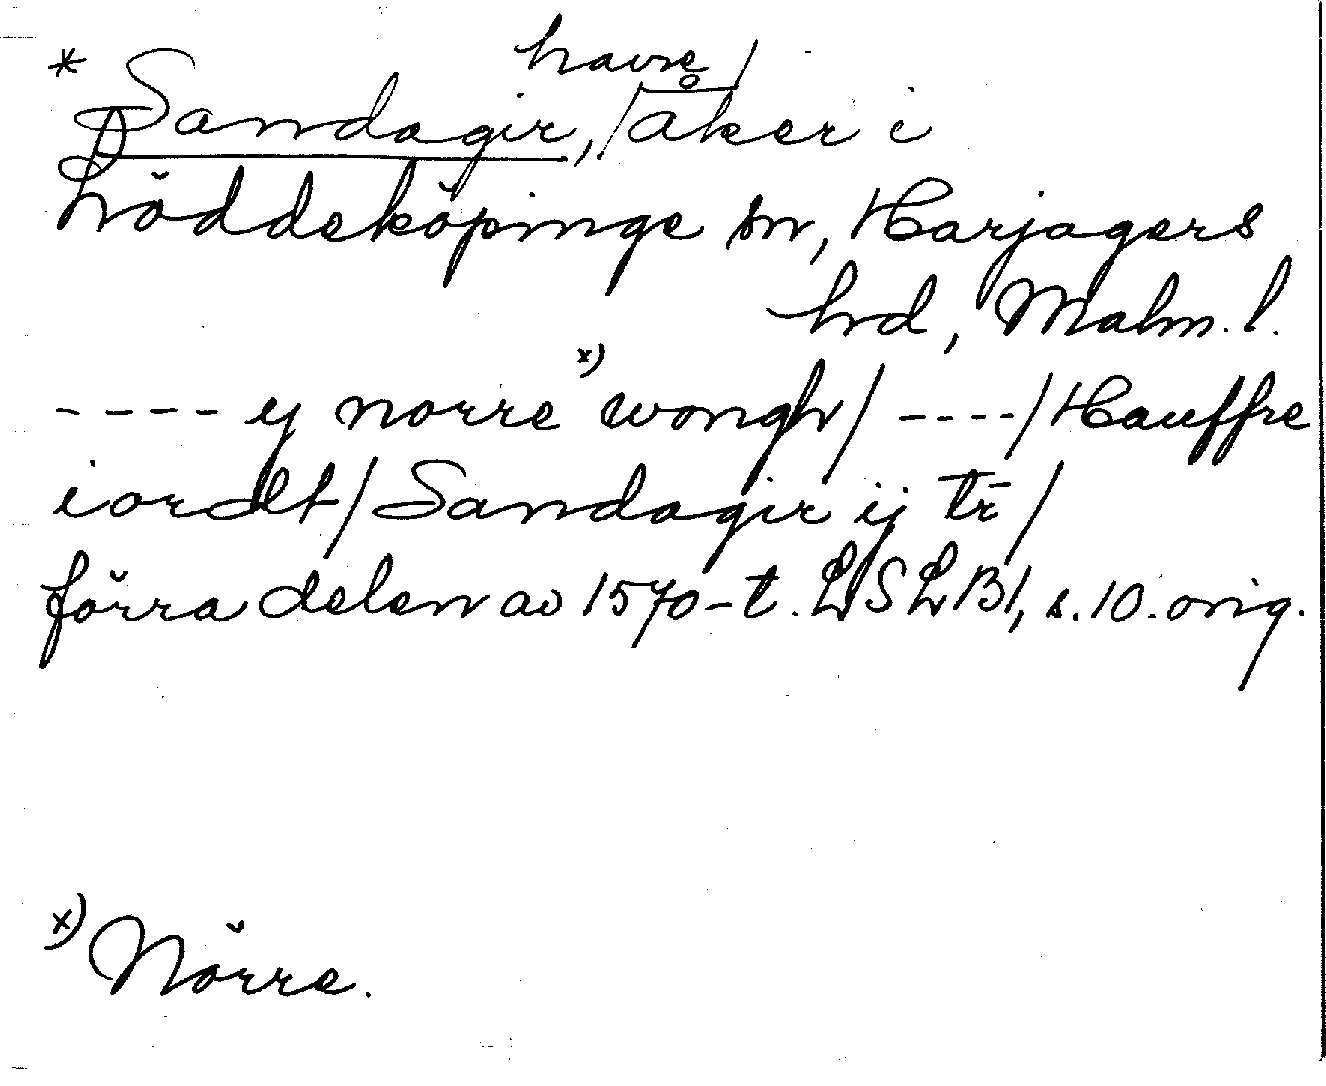 havre/
* Sandagir, /åker i
Löddeköpinge sn, Harjagers
hd, Malm. l.
---- ij norre x) wongh/ ----/Hauffre
iordt/Sandagir ij tr̄/
förra delen av 1570-t. LSLB1, s. 10. orig.
x) Nörre.